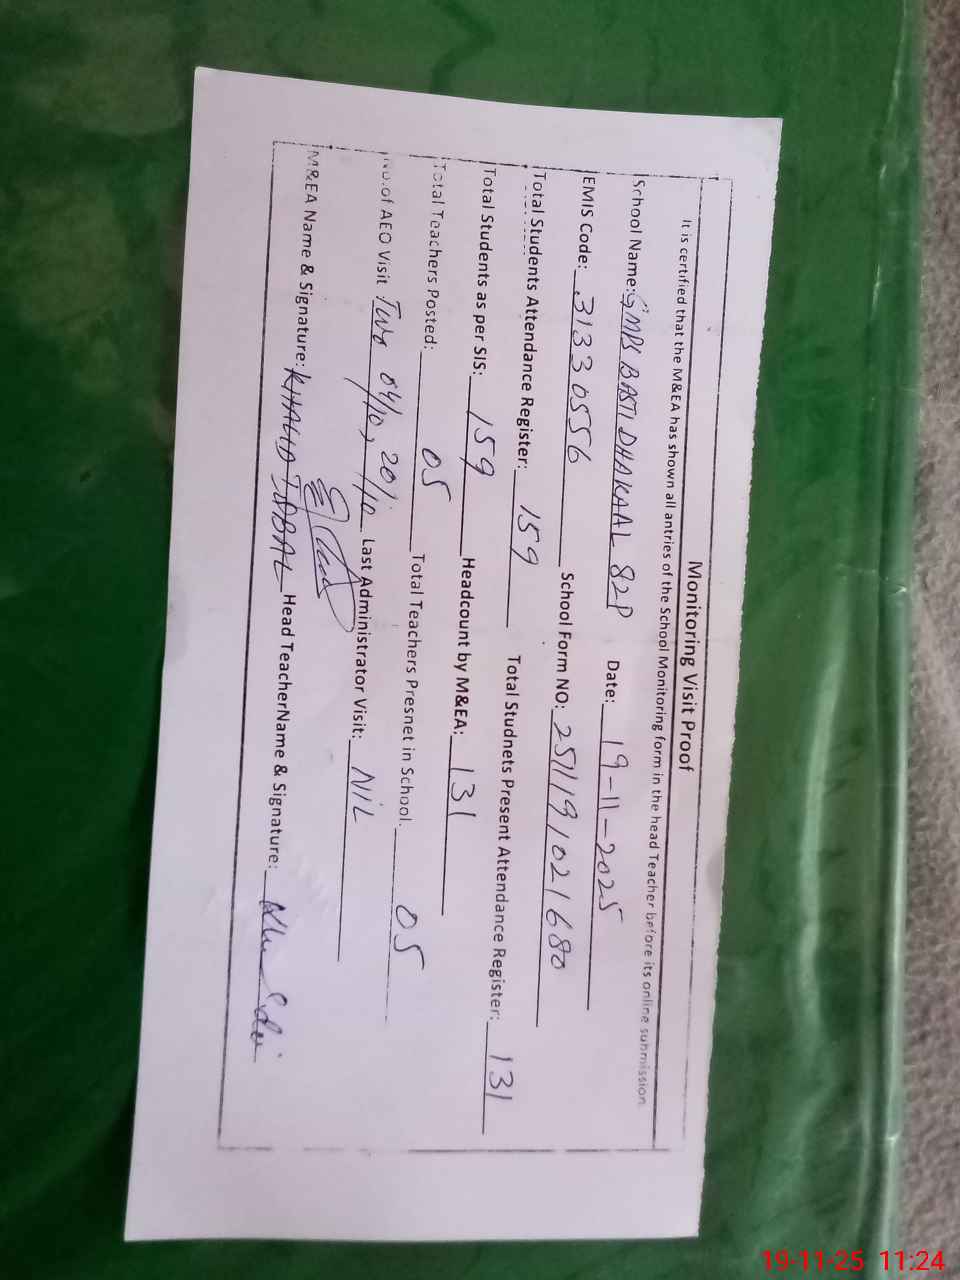 Monitoring Visit Proof
It is certified that the M&EA has shown all antries of the School Monitoring form in the head Teacher before its online submission
School Name: GMPS BASTI DHAKAAL 82P Date: 19-11-2025
EMIS Code: 31330556 School Form NO: 2511191021680
Total Students Attendance Register: 159 Total Studnets Present Attendance Register: 131
Total Students as per SIS: 159 Headcount by M&EA: 131
Total Teachers Posted: 05 Total Teachers Presnet in School. 05
No.of AEO Visit Two 04/10, 20/10 Last Administrator Visit: NIL
M&EA Name & Signature: KHALID IQBAL Head TeacherName & Signature:
19-11-25 11:24